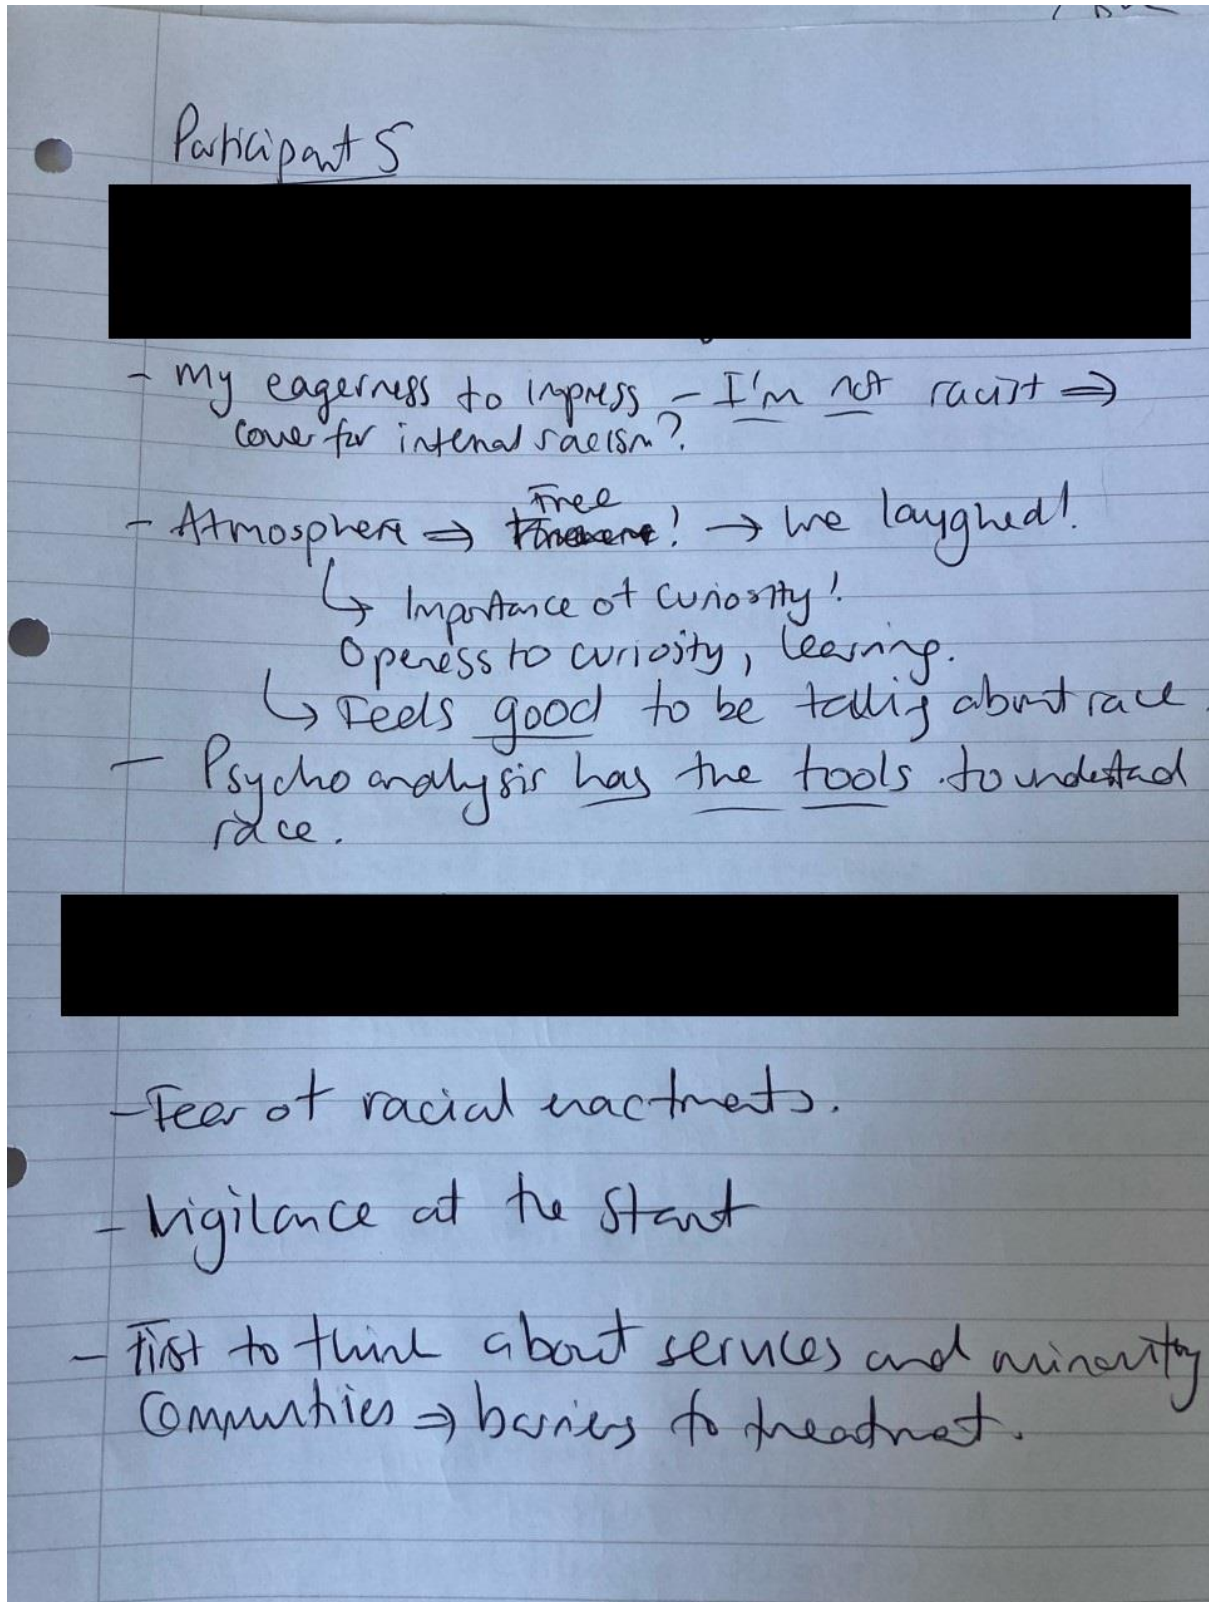 Participant 5
- My eagerness to impress - I'm not racist ⇒
cover for internal racism?
- Atmosphere ⇒ Free! → We laughed!
↳ Importance of curiosity!
Openess to curiosity, learning.
↳ Feels good to be talkig about race.
- Psychoanalysis has the tools to undestad
race.
- Fear of racial enactments.
- Vigilance at the start
- First to think about services and minority
Communities ⇒ bariers to treatmet.